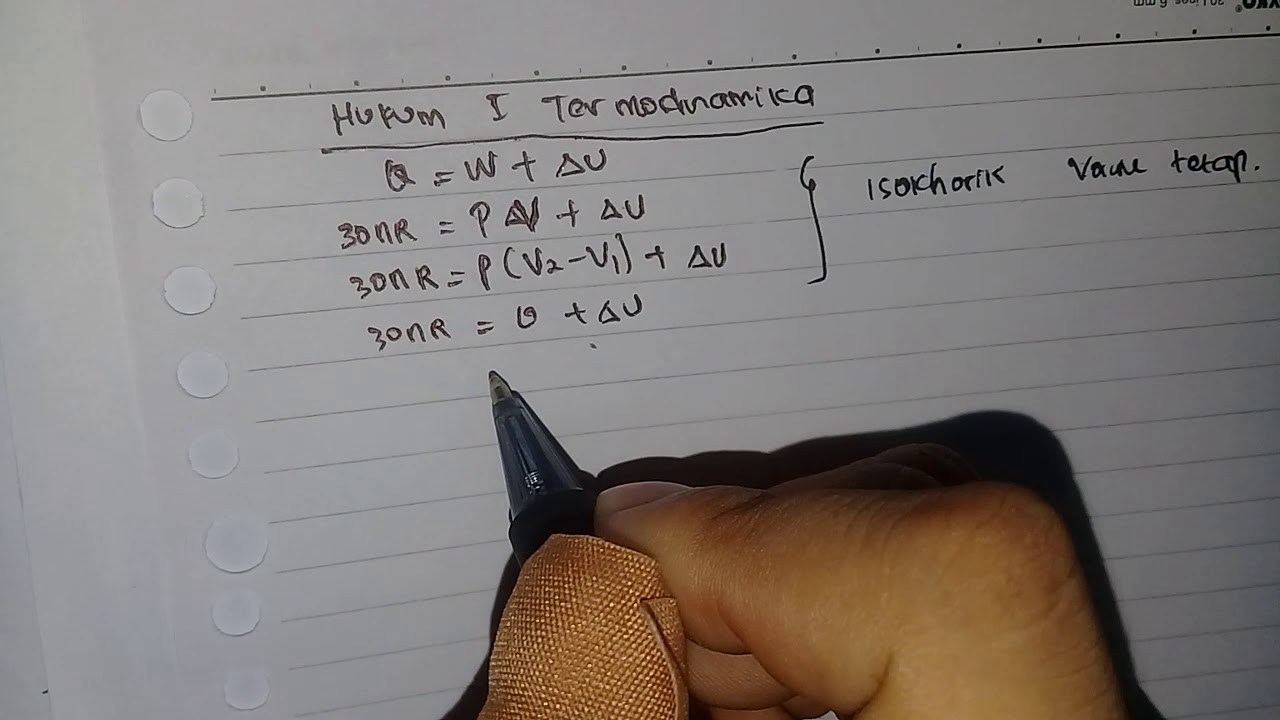 Hukum I Termodnamika
Q = W + ΔU
30nR = P ΔV + ΔU
30nR = P (V2 - V1) + ΔU
30nR = 0 + ΔU
isokhorik tetap.